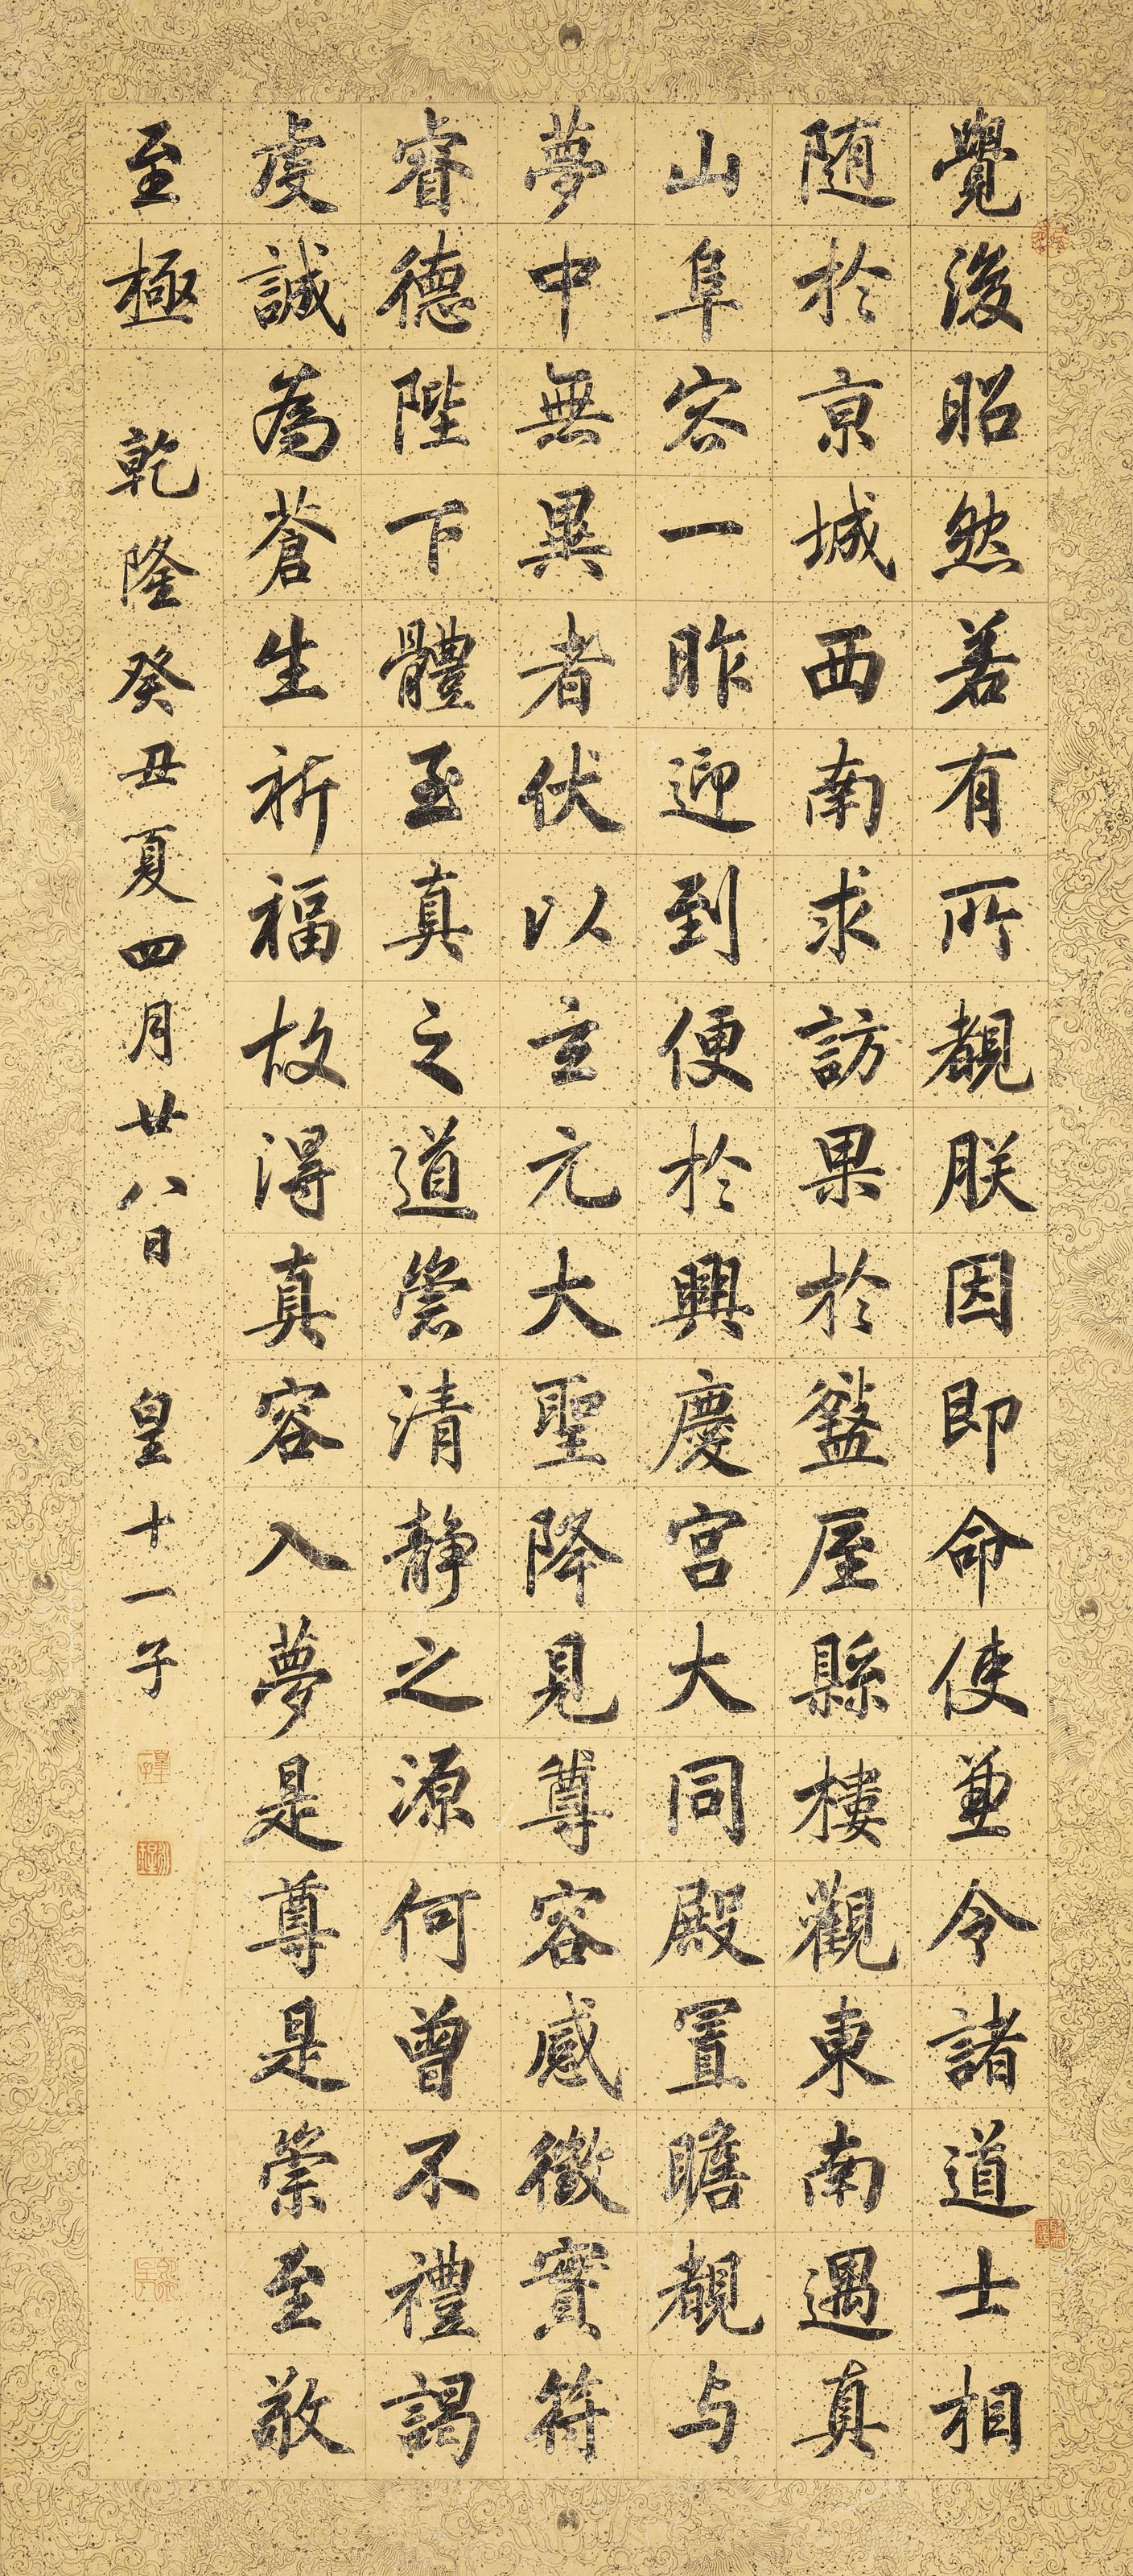 覺後昭然若有所覩朕因即命使兼令諸道士相
随於京城西南求訪果於盩厔縣樓觀東南遇真
山阜容一昨迎到便於興慶宫大同殿置瞻覩与
夢中無異者伏以玄元大聖降見尊容感徵寳符
睿德陛下體至真之道崇清静之源何曾不禮謁
虔誠為蒼生祈福故得真容入夢是尊是崇至敬
至極 乾隆癸丑夏四月廿八日 皇十一子